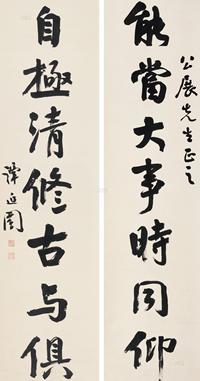 公展先生正之
能當大事時同仰
自極清修古与俱
譚延闓